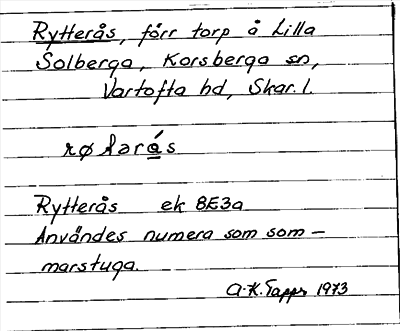 Rytterås, förr torp å Lilla
Solberga, Korsberga sn,
Vartofta hd, Skar. l.
Rytterås ek 8E3a
Användes numera som som-
marstuga.
A.K. 1973